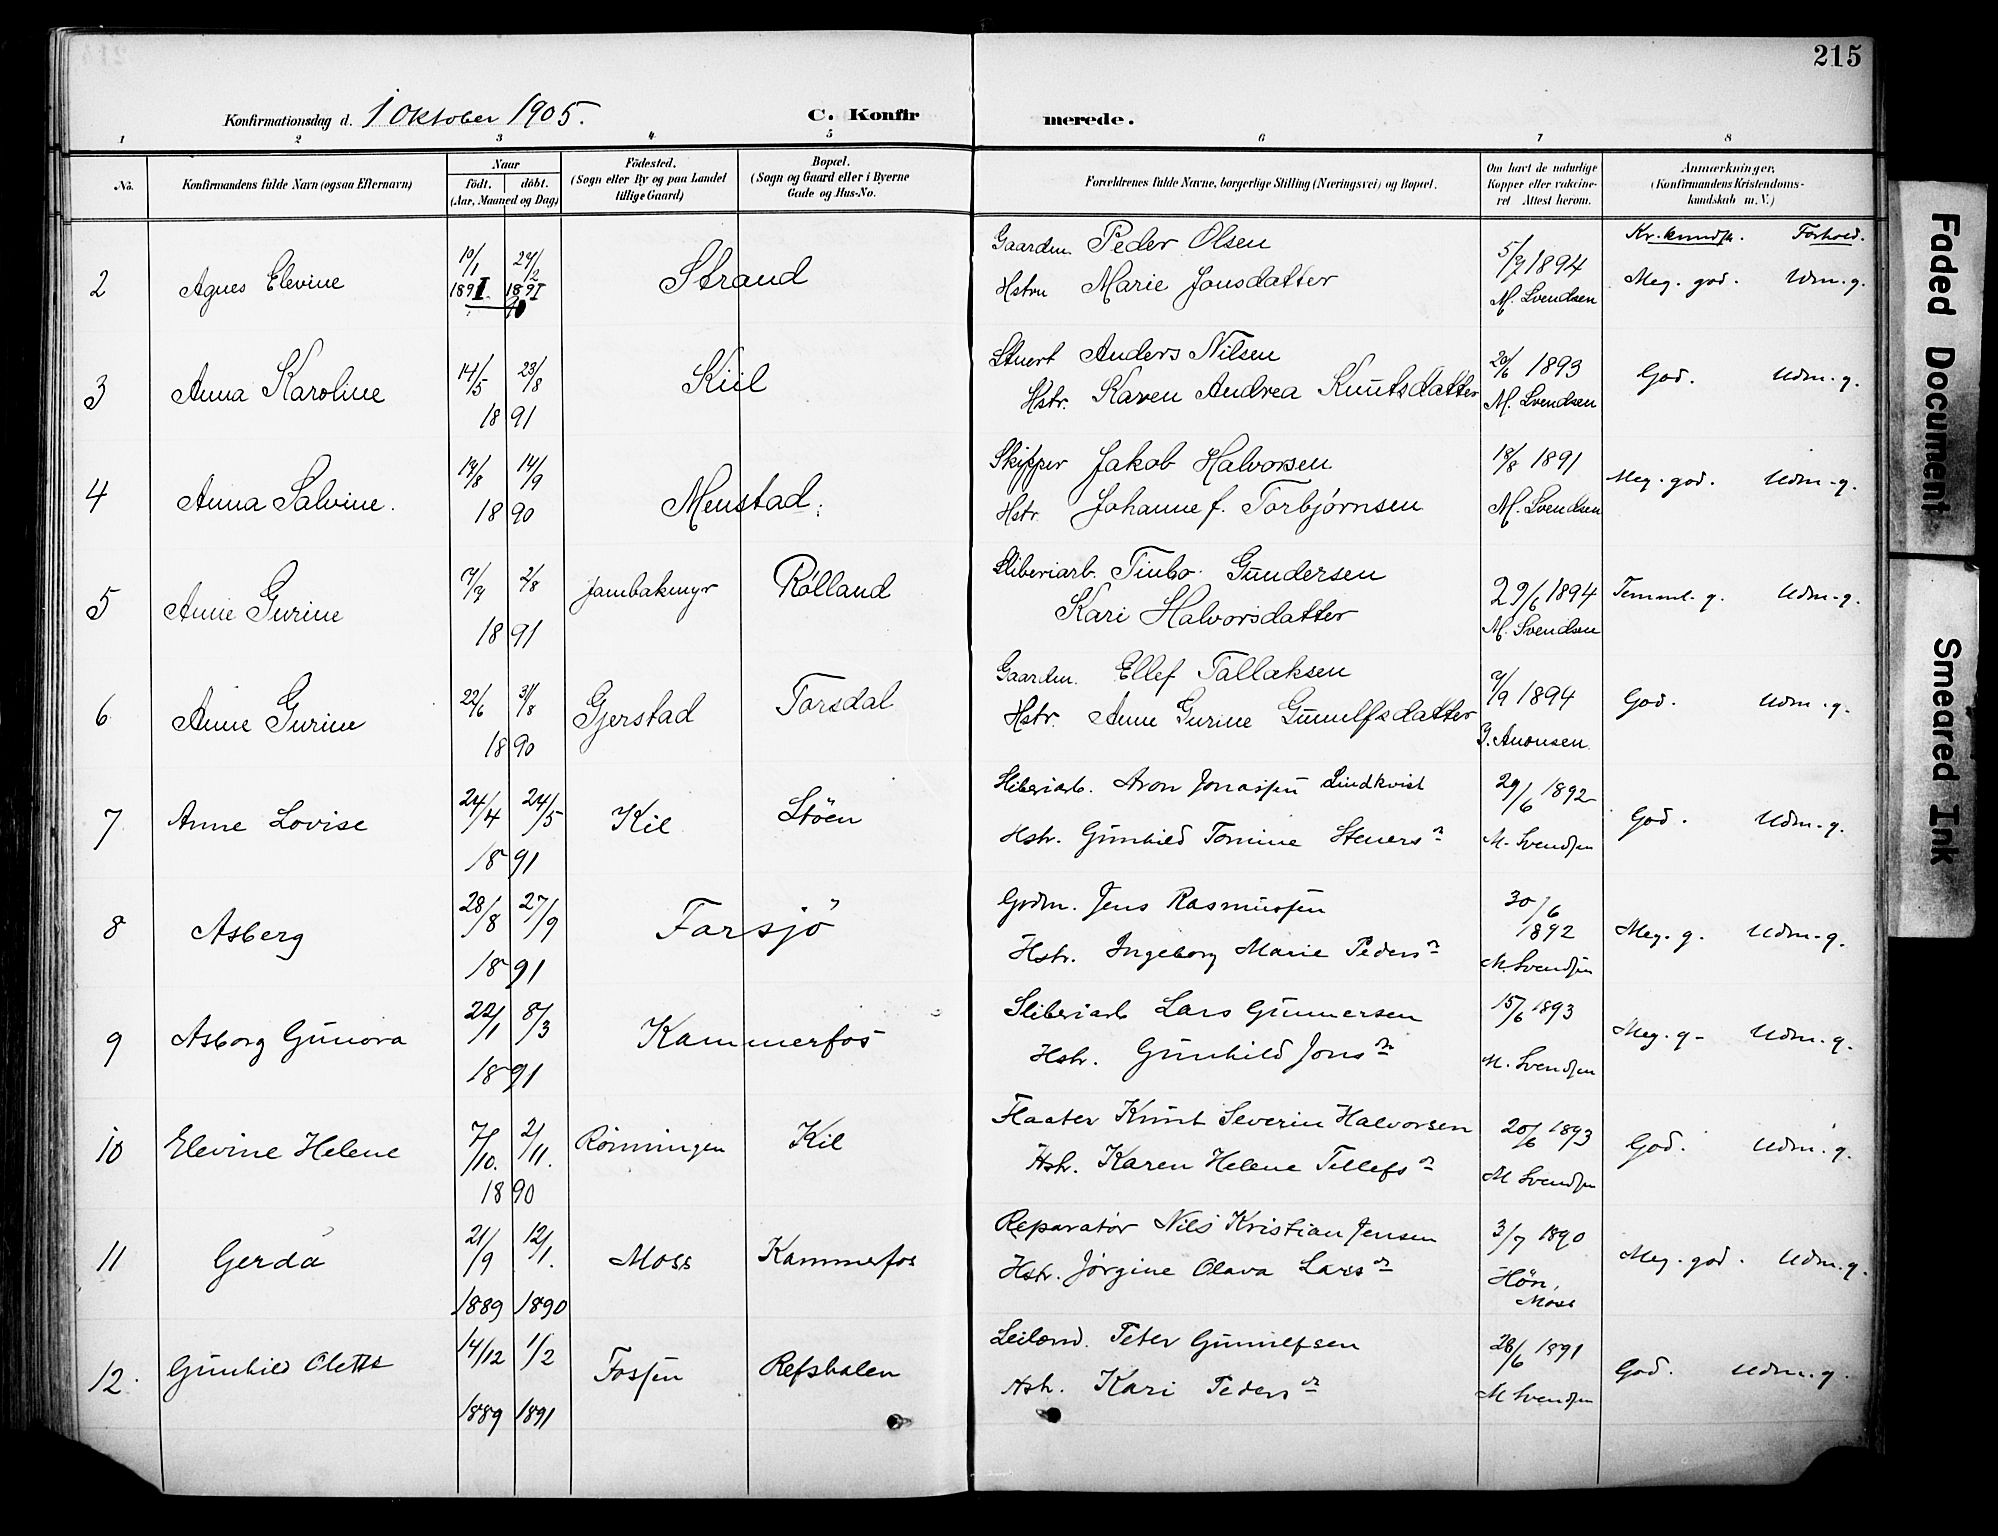 215
Konfirmationsdag d. 1 Oktober 1905. C. Konfirmerede.
1 2 3 4 5 6 7 8
No. Konfirmandens fulde Navn (ogsaa Efternavn) Naar födt. döbt. (Aar, Maaned og Dag) Födested. (Sogn eller By og paa Landet tillige Gaard) Bopæl. (Sogn og Gaard eller i Byerne Gade og Hus-No. Forældrenes fulde Navne, borgerlige Stilling (Næringsvei) og Bopæl. Om havt de naturlige Kopper eller vakcineret Attest herom. Anmærkninger. (Konfirmandens Kristendomskundskab m. V.)
Kr. kundsk. Forhold.
2 Agnes Elevine 10/1 1891 24/2 1891 Strand Gaardm. Peder Olsen 5/7 1894 Meg. god. Udm. g.
90 Hstru Marie Jonsdatter M. Svendsen
3 Anna Karoline 14/5 23/8 Kiil Stuert Anders Nilsen 20/6 1893 God. Udm. g.
1891 Hstr. Karen Andrea Knutsdatter M. Svendsen
4 Anna Salvine. 19/8 14/9 Menstad. Skipper Jakob Halvorsen 18/8 1891 Meg. god. Udm. g.
1890 Hstr. Johanne f. Torbjørnsen M. Svendsen
5 Anne Gurine 7/7 2/8 Jambakmyr Rølland Sliberiarb. Gundersen 29/6 1894 Temml. g. Udm. g.
1891 Kari Halvorsdatter M. Svendsen
6 Anne Gurine 22/6 31/8 Gjerstad Torsdal Gaardm. Ellef Tallaksen 9/9 1894 God. Udm. g.
1890 Hstr. Anne Gurine Gunulfsdatter
7 Anne Lovise 24/4 24/5 Kil Støen Sliberiarb. Aron Jonassen Lindkvist 29/6 1892 God. Udm. g.
1891 Hstr. Gunhild Tomine M. Svendsen
8 Asberg 28/8 27/9 Farsjö Grdm. Jens Rasmussen 30/6 1892 Meg. g. Udm. g.
1891 Hstr. Ingeborg Marie Pedersdr M. Svendsen
9 Asborg Gunora 22/1 8/3 Kammerfos Sliberiarb Lars Gunnersen 15/6 1893 Meg. g. Udm. g.
1891 Hstr. Gunhild Jonsdr M. Svendsen
10 Elevine Helene 7/10. 2/11. Rönningen Kil Flaater Knut Severin Halvorsen 20/6 1893 God. Udm. g.
1890 Hstr. Karen Helene Tellefsdr M Svendsen
11 Gerda 21/9 12/1. Moss Kammerfos Reparatör Nils Kristian Jensen 3/7 1890 Meg. god. Udm. g.
1889 1890 Hstr. Jörgine Olava Larsdr Hön, Moss
12. Gunhild Oletta 14/12 1/2 Fossen Refshalen Leilænd. Peter Gunulfsen 26/6 1891 God. Udm. g.
1889 1891 Hstr. Kari Pedersdr M Svendsen
Faded Document
Smeared Ink